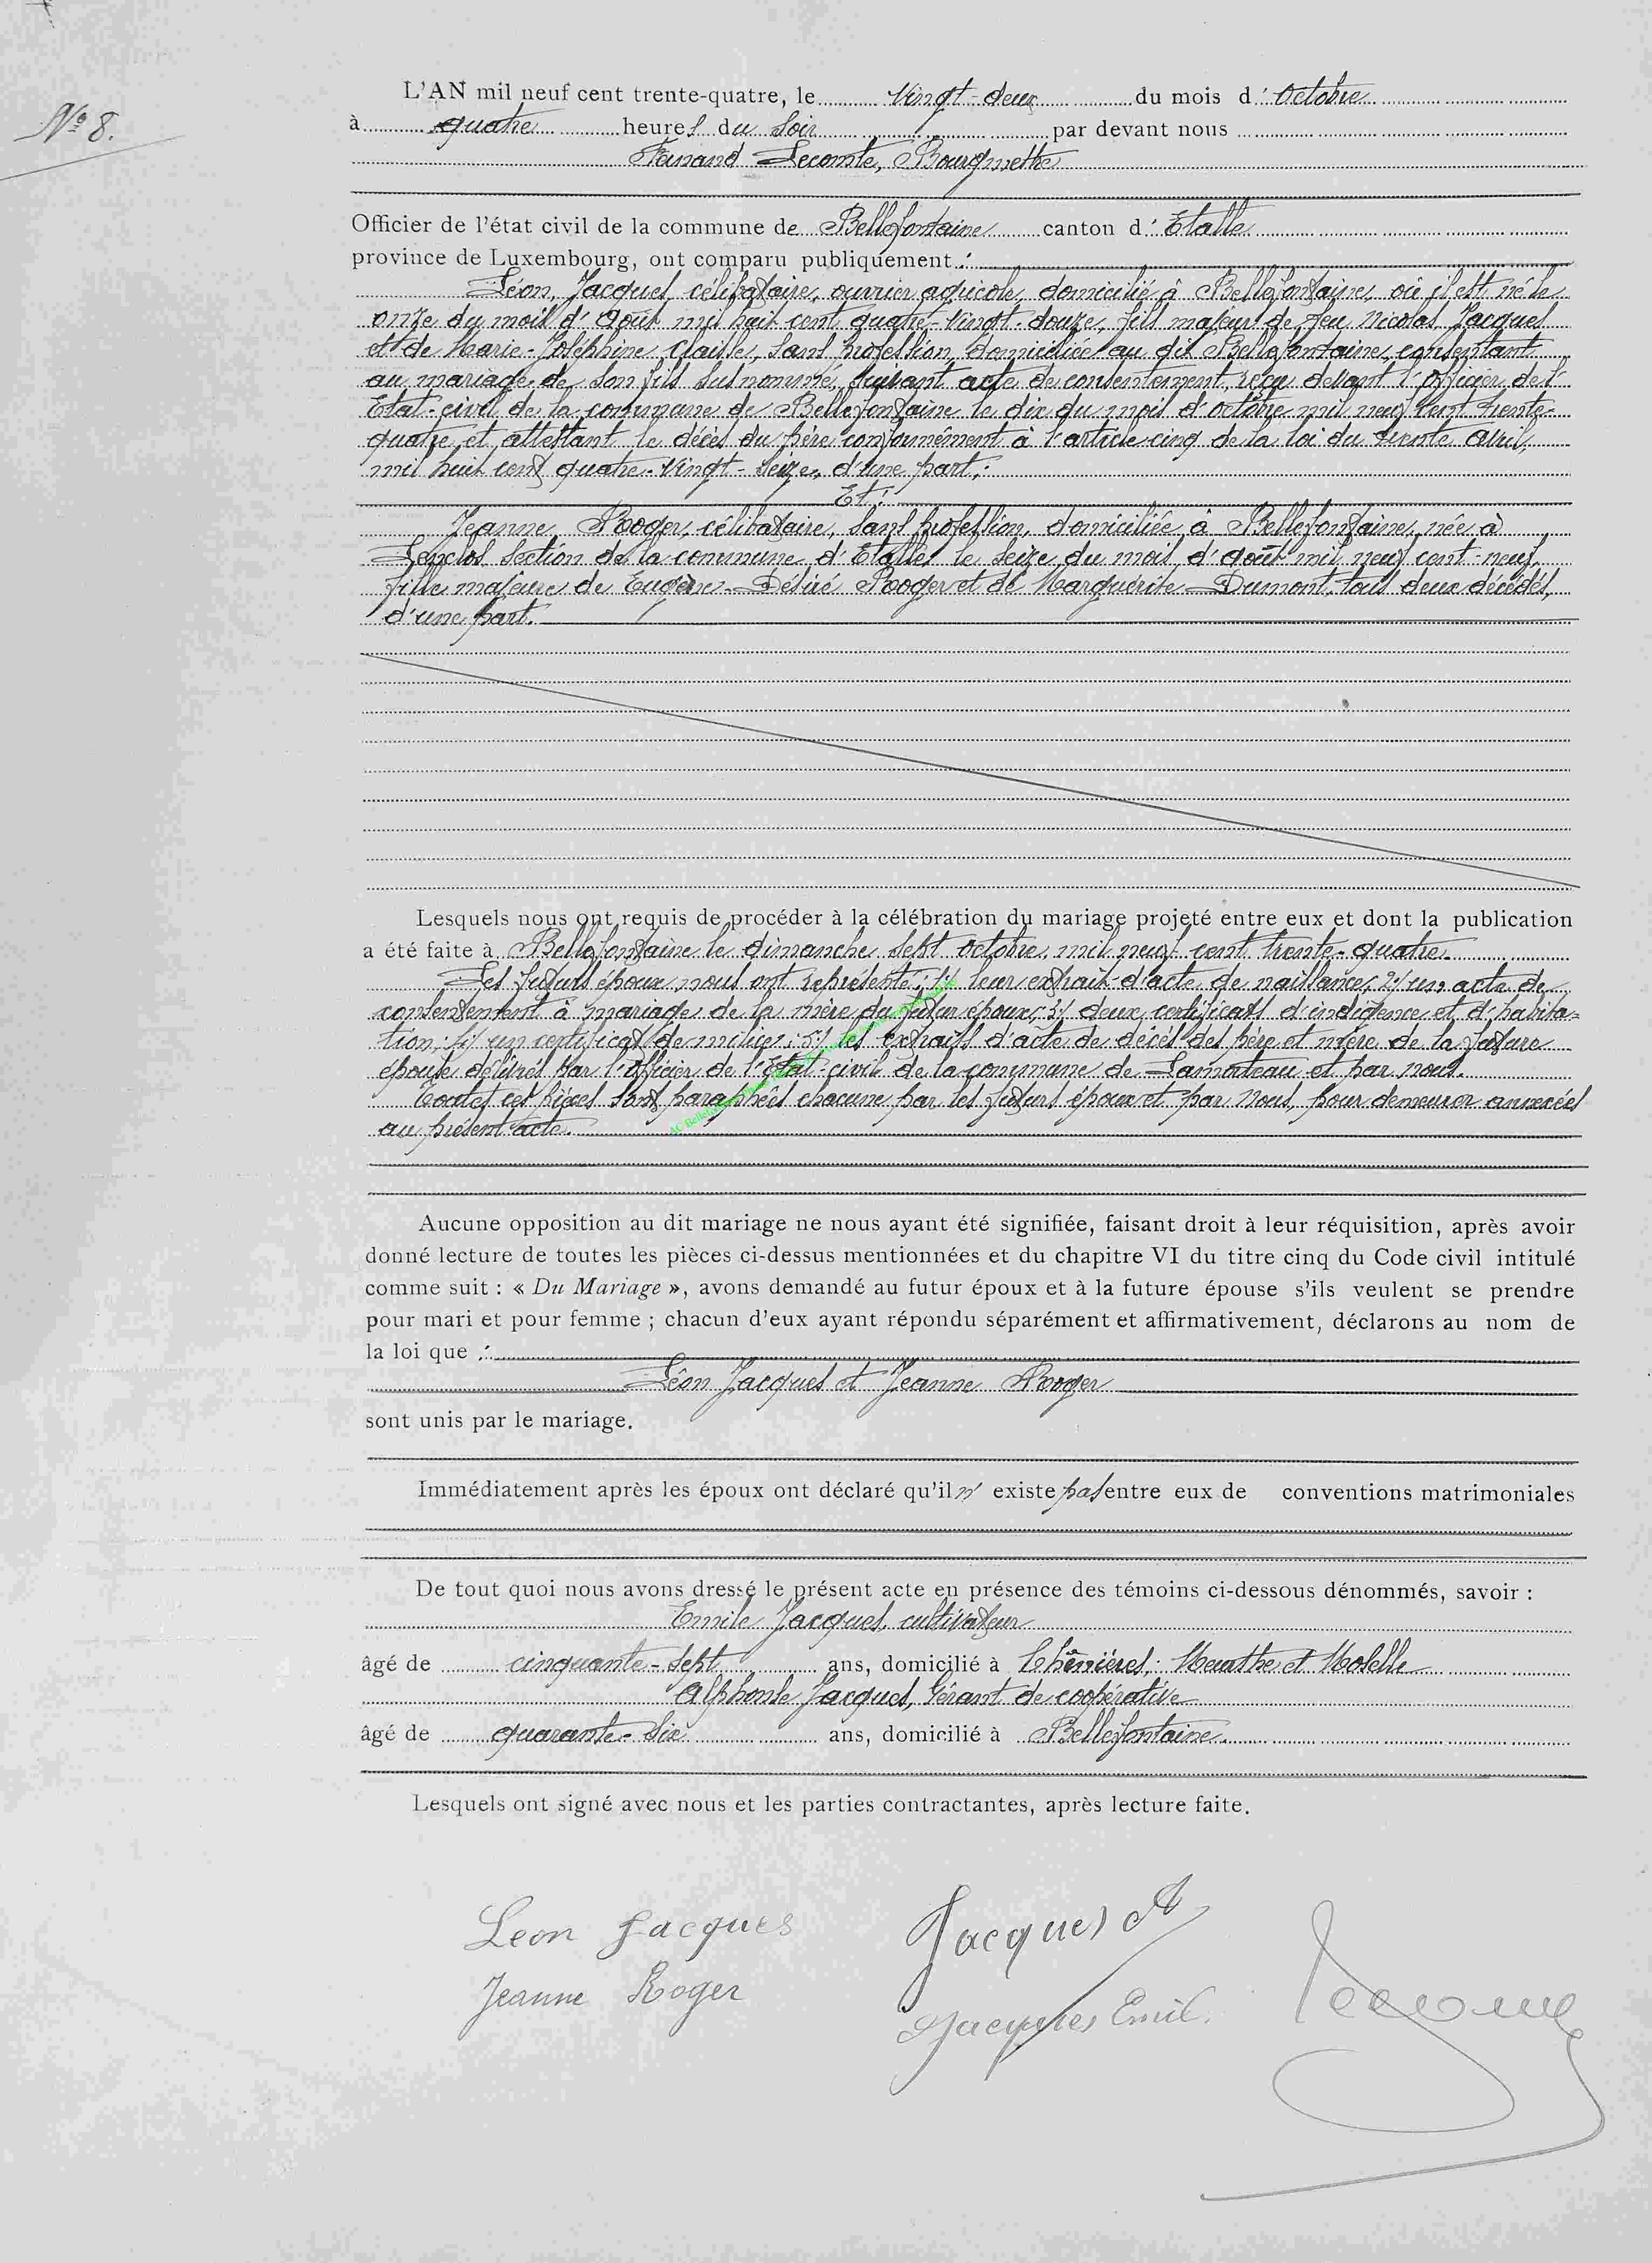 N° 8.
L'AN mil neuf cent trente-quatre, le Vingt-deux du mois d' Octobre
à quatre heures du Soir par devant nous
Fernand Lecomte, Bourgmestre
Officier de l'état civil de la commune de Bellefontaine canton d' Etalle
province de Luxembourg, ont comparu publiquement :
Léon, Jacques, célibataire, ouvrier agricole, domicilié à Bellefontaine, où il est né le
onze du mois d' Août mil huit cent quatre-Vingt-douze, fils majeur de feu Nicolas Jacques
et de Marie-Joséphine Claisse, Sans profession, domiciliée au dit Bellefontaine, consentant
au mariage de Son fils Susnommé, Suivant acte de consentement, reçu devant l'officier de l'
Etat-civil de la commune de Bellefontaine le dix du mois d'octobre mil neuf cent trente-
quatre, et attestant le décès du père conformément à l'article cinq de la loi du trente Avril,
mil huit cent quatre-Vingt-Seize, d'une part;
Et:
Jeanne, Rooger, célibataire, Sans profession, domiciliée à Bellefontaine, née à
Lenclos Section de la commune d'Etalle, le Seize du mois d'août mil neuf cent-neuf,
fille majeure de Eugène-Désiré Rooger et de Marguérite Dumont, tous deux décédés,
d'une part.
Lesquels nous ont requis de procéder à la célébration du mariage projeté entre eux et dont la publication
a été faite à Bellefontaine le dimanche Sept Octobre, mil neuf cent trente-quatre.
Les futurs époux nous ont représenté: 1/ leur extrait d'acte de naissance, 2/ un acte de
consentement à mariage de la mère du futur époux; 3/ deux certificats d'indigence et d'habita=
tion; 4/ un certificat de milice; 5/ les extraits d'acte de décès des père et mère de la future
épouse délivrés par l'Officier de l'Etat-civil de la commune de Lamorteau et par nous.
Toutes ces pièces Sont paraphées chacune par les futurs époux et par Nous, pour demeurer annexées
au présent acte.
Aucune opposition au dit mariage ne nous ayant été signifiée, faisant droit à leur réquisition, après avoir
donné lecture de toutes les pièces ci-dessus mentionnées et du chapitre VI du titre cinq du Code civil intitulé
comme suit : « Du Mariage », avons demandé au futur époux et à la future épouse s'ils veulent se prendre
pour mari et pour femme ; chacun d'eux ayant répondu séparément et affirmativement, déclarons au nom de
la loi que :
Léon Jacques et Jeanne Rooger
sont unis par le mariage.
Immédiatement après les époux ont déclaré qu'il n' existe pas entre eux de conventions matrimoniales
De tout quoi nous avons dressé le présent acte en présence des témoins ci-dessous dénommés, savoir :
Emile Jacques, cultivateur
âgé de cinquante-Sept ans, domicilié à Chênières, Meurthe et Moselle
Alphonse Jacques, Gérant de coopérative
âgé de quarante-Six ans, domicilié à Bellefontaine.
Lesquels ont signé avec nous et les parties contractantes, après lecture faite.
Leon Jacques
Jacques A
Jeanne Roger
Jacques Emil.
Lecomte